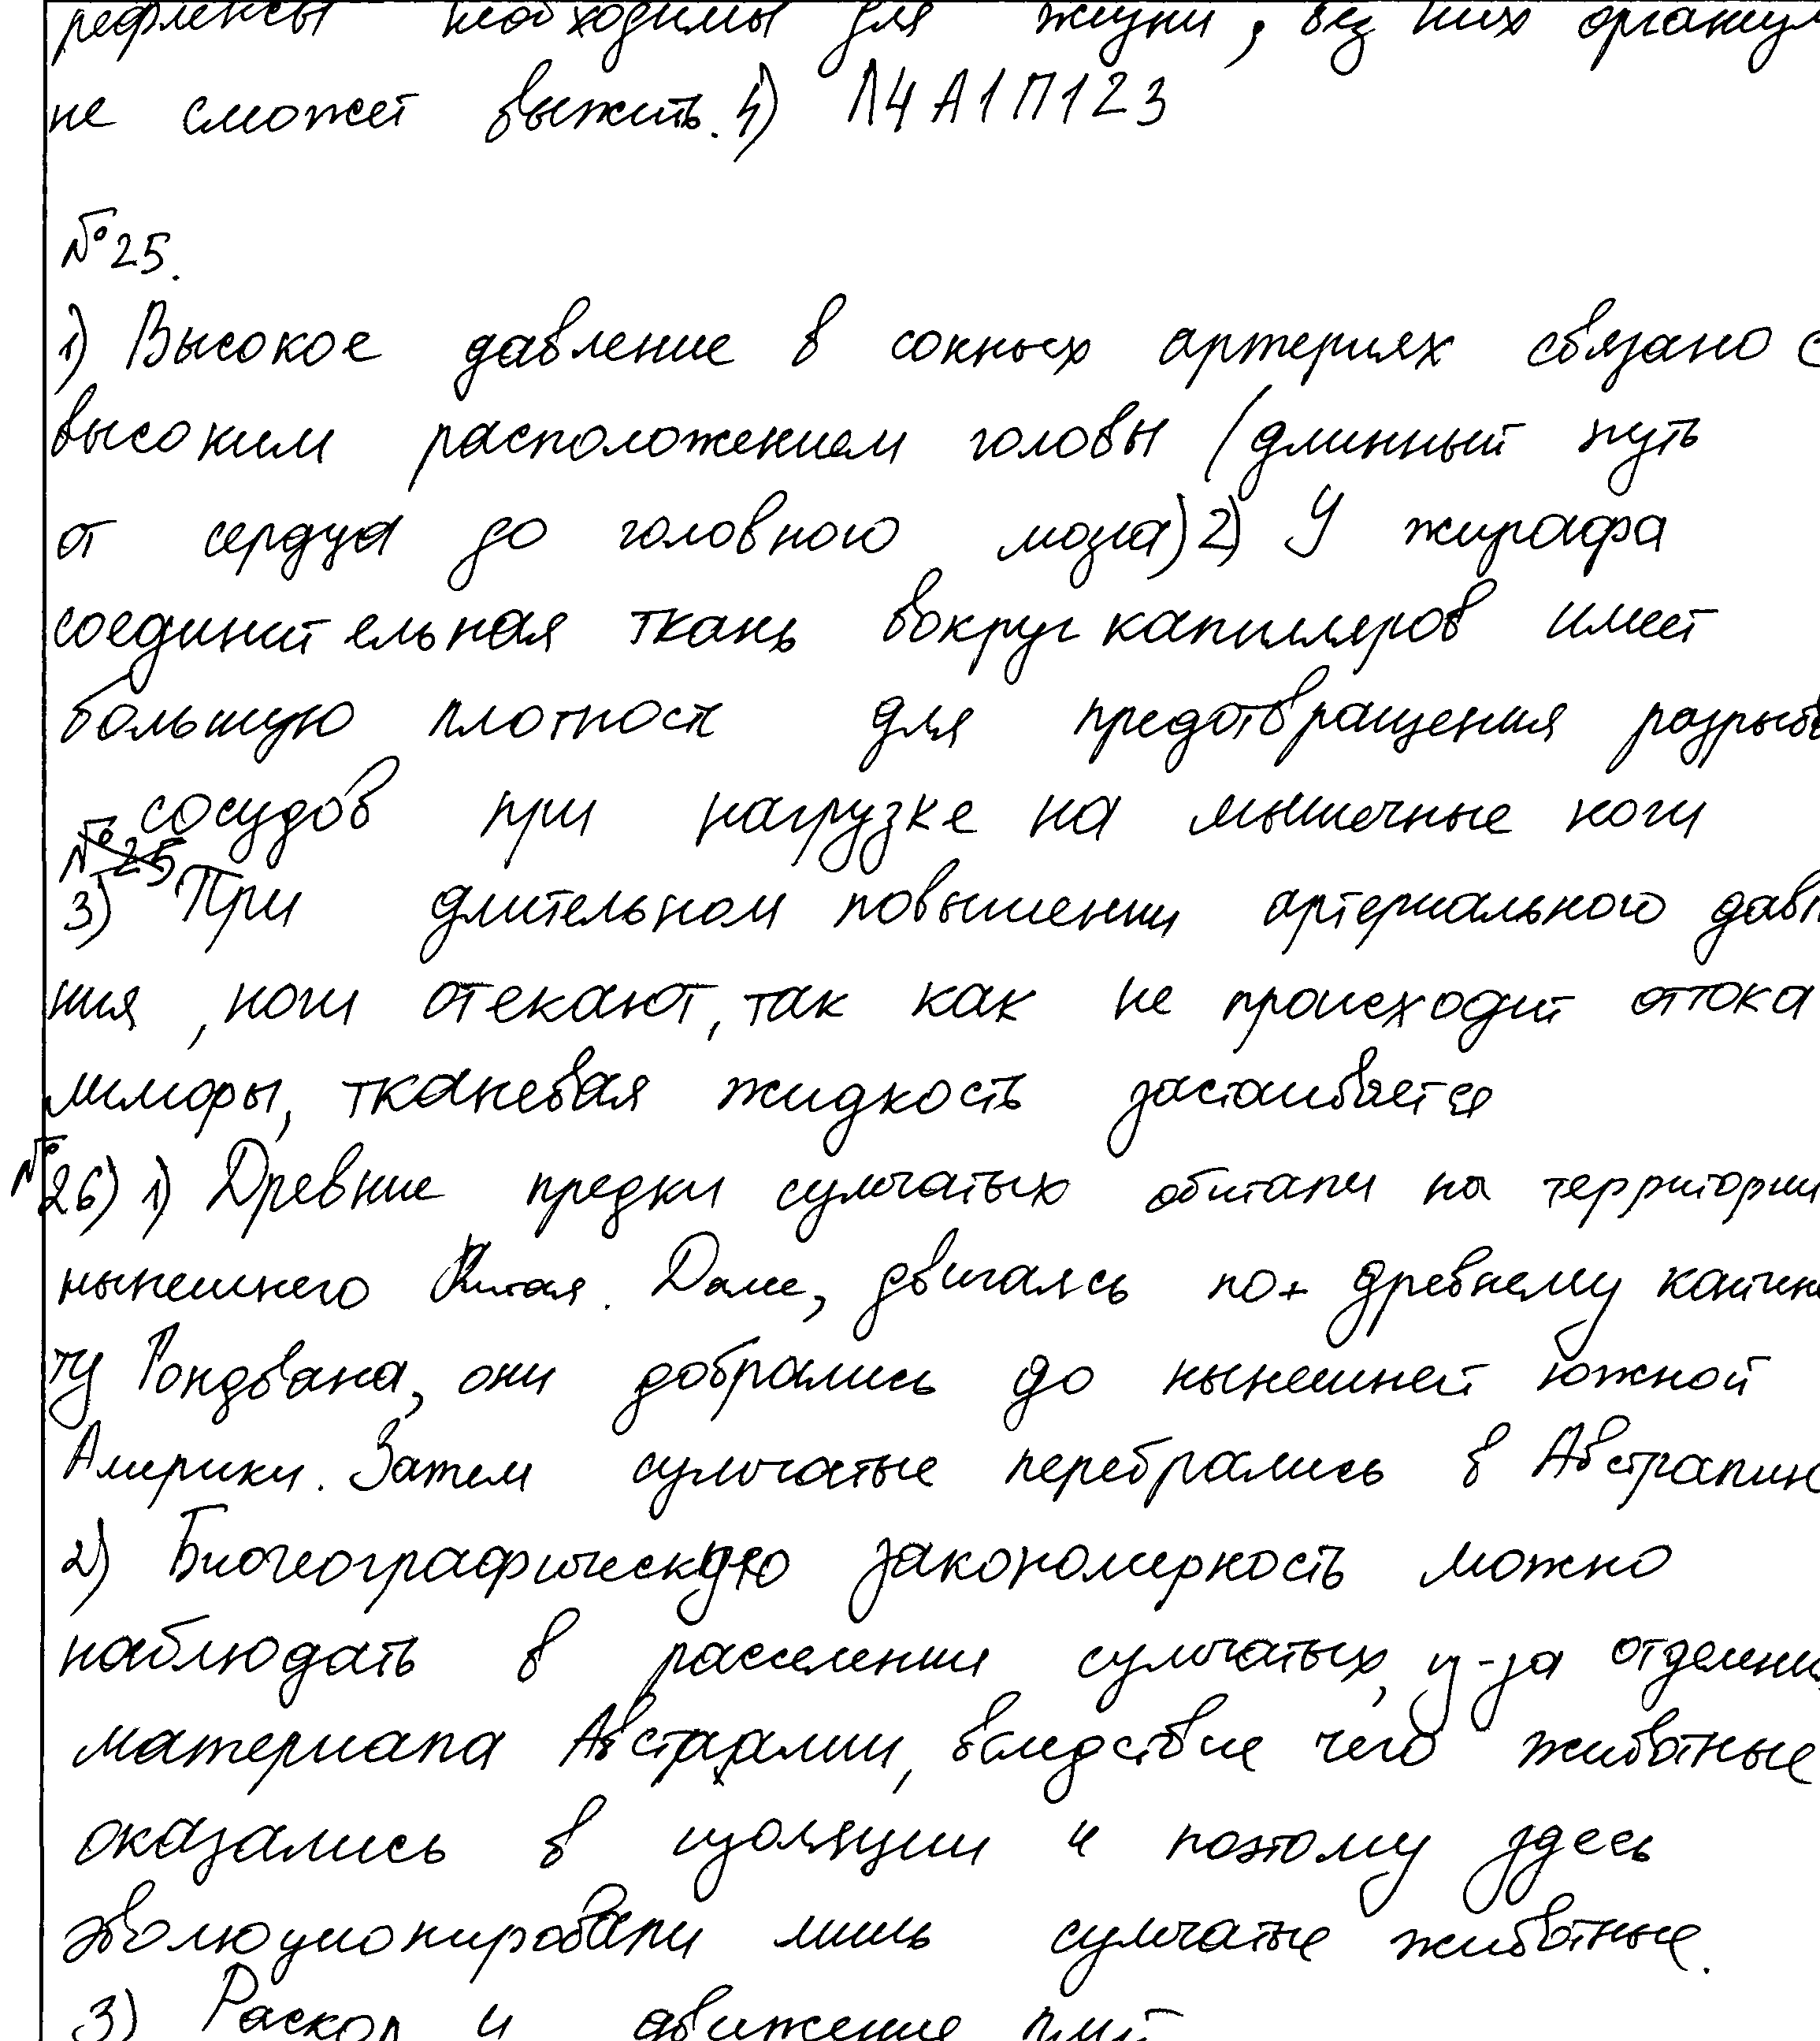 рефлексы необходимы для жизни, без них организм
не сможет выжить. 4) Л4А1П123
№25.
1) Высокое давление в сонных артериях связано с
высоким расположением головы (длинный путь
от сердца до головного мозга) 2) У жирафа
соединительная ткань вокруг капилляров имеет
большую плотность для предотвращения разрыва
сосудов при нагрузке на мышечные ноги
№25
3) При длительном повышении артериального давле
ния, ноги отекают, так как не происходит оттока
лимфы, тканевая жидкость застаивается
№26) 1) Древние предки сумчатых обитали на территории
нынешнего Китая. Далее, двигаясь по древнему контине
ту Гондвана, они добрались до нынешней южной
Америки. Затем сумчатые перебрались в Австралию
2) Биогеографическую закономерность можно
наблюдать в расселении сумчатых, из-за отделения
материапа Австралии, вследствие чего животные
оказались в изоляции и поэтому здесь
эволюционировали лишь сумчатые животные.
3) Раскол и движение плит